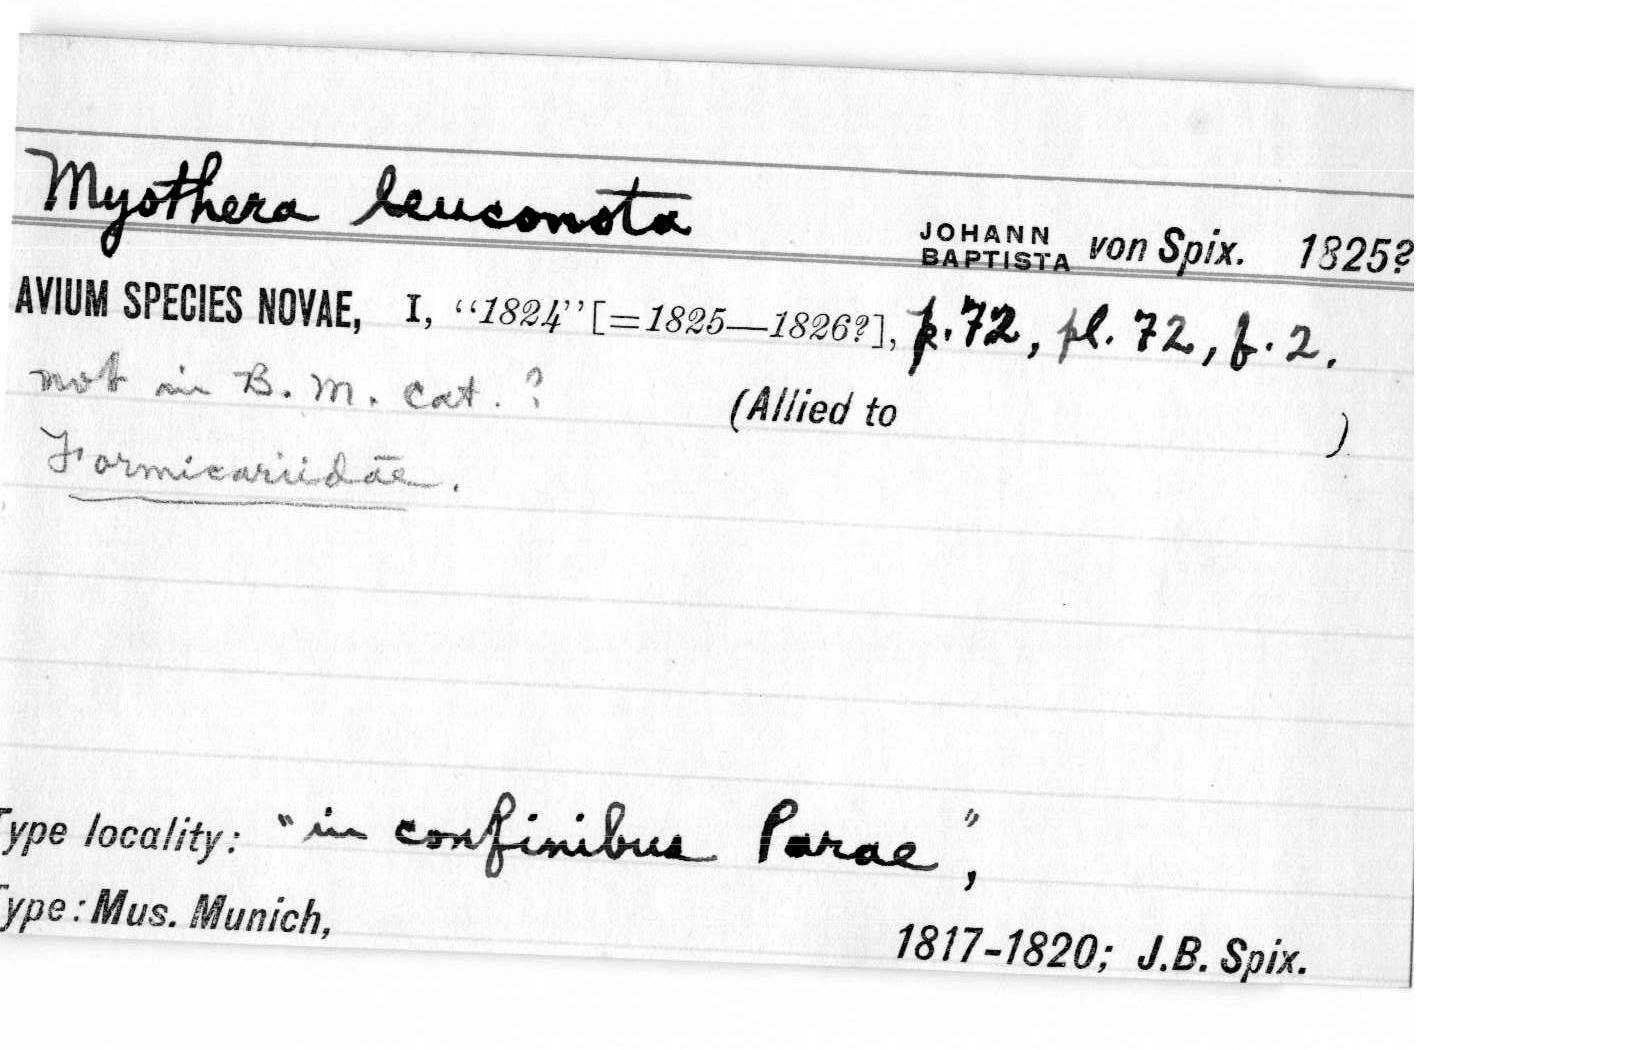 Myothera leuconota JOHANN BAPTISTA von Spix. 1825?
AVIUM SPECIES NOVAE, I, “1824” [=1825—1826?], p. 72, pl. 72, f. 2.
not in B. M. cat. ? (Allied to )
Formicariidae.
Type locality: "in confinibus Parae",
Type: Mus. Munich, 1817-1820; J.B. Spix.